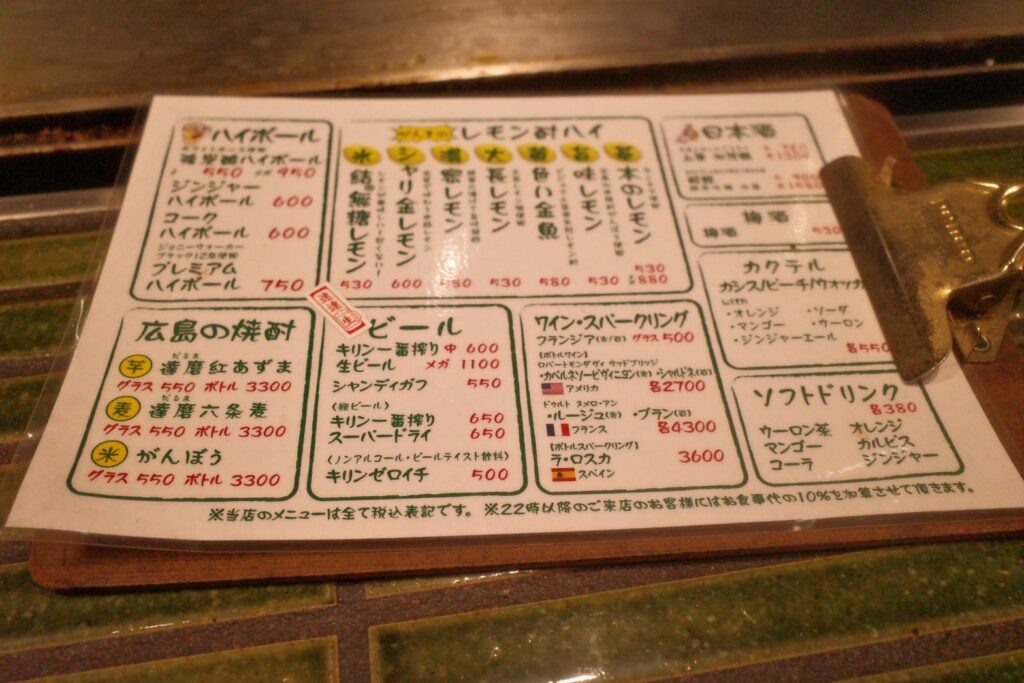 ハイボール
ハイボール
550 メガ 950
ジンジャー
ハイボール 600
コーク
ハイボール 600
ジョニーウォーカー
ブラック12年使用
プレミアム
ハイボール 750
がんすの レモン酎ハイ
氷結®無糖レモン
530
シャリ金レモン
600
濃蜜レモン
580
大長レモン
530
黄い金魚
580
味レモン
530
基本のレモン
530
メガ 880
日本酒
梅酒
梅酒 530
カクテル
カシス/ピーチ/ウォッカ
with
・オレンジ ・ソーダ
・マンゴー ・ウーロン
・ジンジャーエール
各550
広島の焼酎
芋 達磨紅あずま
だるま
グラス 550 ボトル 3300
麦 達磨六条麦
だるま
グラス 550 ボトル 3300
米 がんぼう
グラス 550 ボトル 3300
ビール
キリン一番搾り 中 600
生ビール メガ 1100
シャンディガフ 550
〈瓶ビール〉
キリン一番搾り 650
スーパードライ 650
〈ノンアルコール・ビールテイスト飲料〉
キリンゼロイチ 500
ワイン・スパークリング
フランジア(赤/白) グラス 500
【ボトルワイン】
ロバートモンダヴィ ウッドブリッジ
・カベルネソービヴィニヨン(赤)・シャルドネ(白)
アメリカ 各2700
ドゥルト ヌメロ・アン
・ルージュ(赤) ・ブラン(白)
フランス 各4300
【ボトルスパークリング】
ラ・ロスカ 3600
スペイン
ソフトドリンク
各380
ウーロン茶 オレンジ
マンゴー カルピス
コーラ ジンジャー
※当店のメニューは全て税込表記です。 ※22時以降のご来店のお客様にはお食事代の10%を加算させて頂きます。